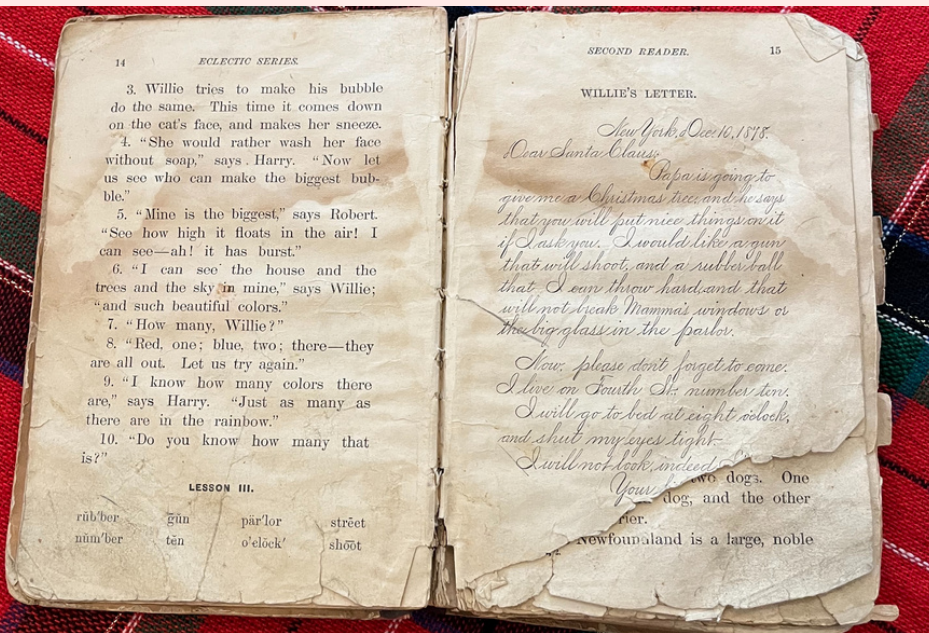 14 ECLECTIC SERIES.
3. Willie tries to make his bubble
do the same. This time it comes down
on the cat's face, and makes her sneeze.
4. “She would rather wash her face
without soap,” says Harry. “Now let
us see who can make the biggest bub-
ble.”
5. “Mine is the biggest,” says Robert.
“See how high it floats in the air! I
can see—ah! it has burst.”
6. “I can see the house and the
trees and the sky in mine,” says Willie;
“and such beautiful colors.”
7. “How many, Willie?”
8. “Red, one; blue, two; there—they
are all out. Let us try again.”
9. “I know how many colors there
are,” says Harry. “Just as many as
there are in the rainbow.”
10. “Do you know how many that
is?”
LESSON III.
rŭb'ber gŭn pär'lor strēet
nŭm'ber tĕn o'clŏck' shōōt
SECOND READER. 15
WILLIE'S LETTER.
New York, Dec. 10, 1878.
Dear Santa Claus:
Papa is going to
give me a Christmas tree, and he says
that you will put nice things on it
if I ask you. I would like a gun
that will shoot, and a rubber ball
that I can throw hard, and that
will not break Mamma's windows or
the big glass in the parlor.
Now, please don't forget to come.
I live on Fourth St., number ten.
I will go to bed at eight o'clock,
and shut my eyes tight.
I will not look, indeed
Your
two dogs. One
dog, and the other
rier.
Newfoundland is a large, noble